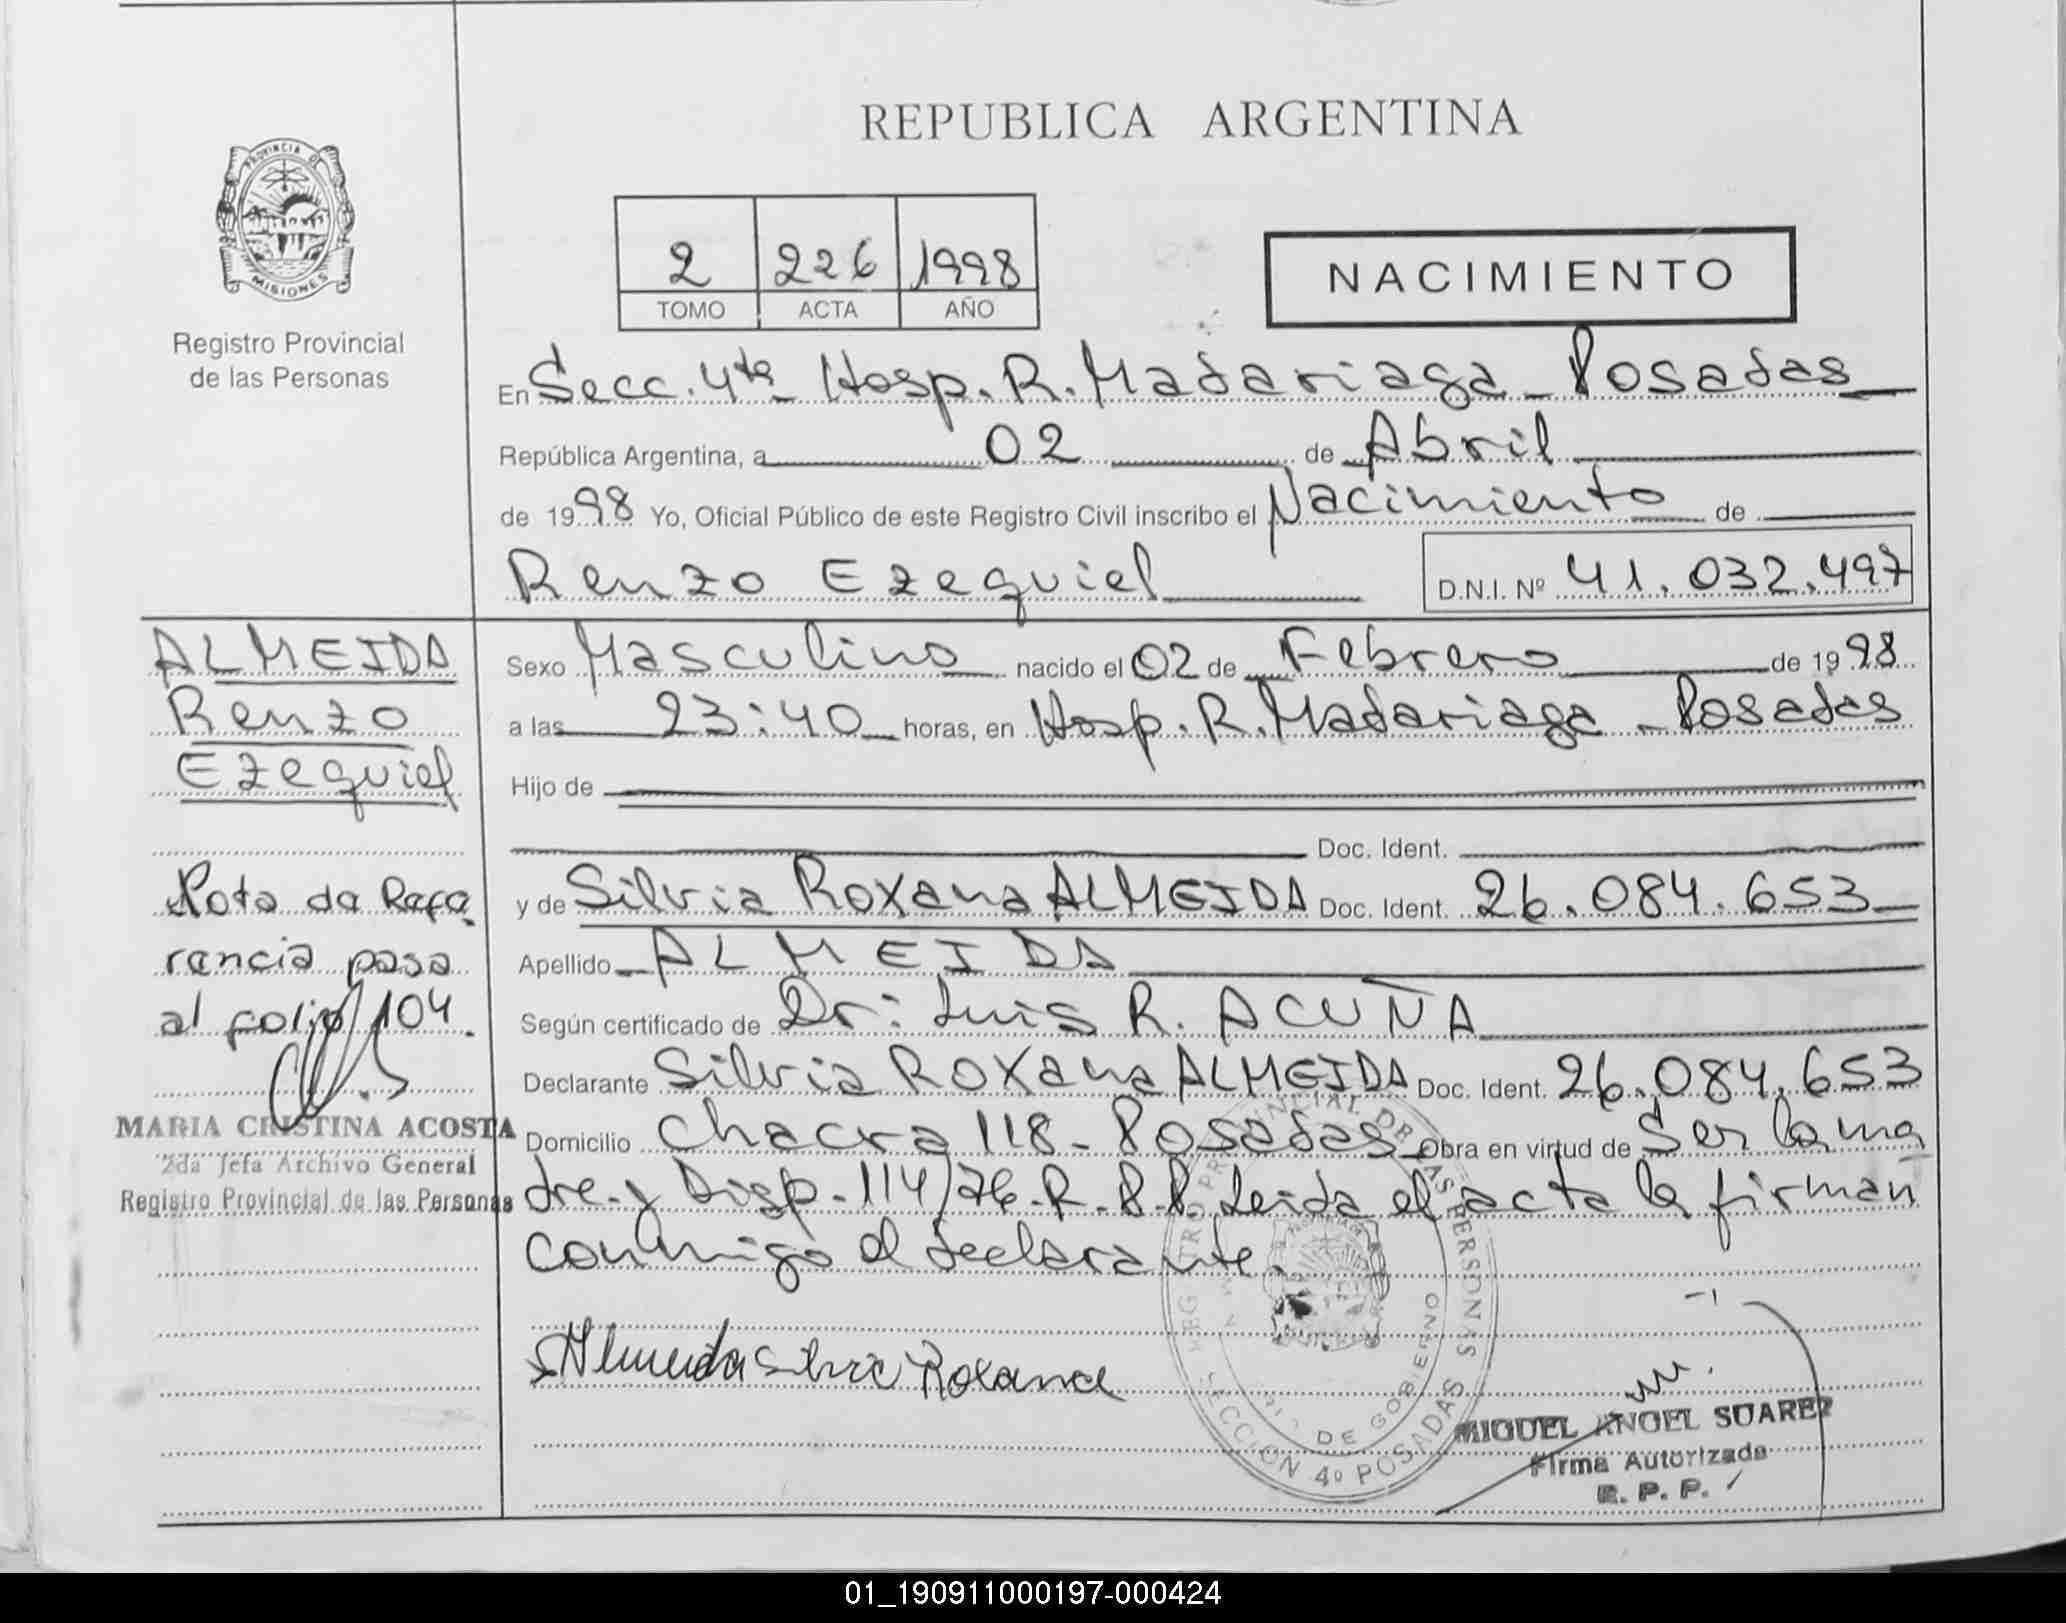 REPUBLICA ARGENTINA
PROVINCIA DE
MISIONES
Registro Provincial
de las Personas
2 226 1998
TOMO ACTA AÑO
NACIMIENTO
En Secc. 4ta - Hosp. R. Madariaga - Posadas
República Argentina, a 02 de Abril
de 1998 Yo, Oficial Público de este Registro Civil inscribo el Nacimiento de
Renzo Ezequiel D.N.I. Nº 41.032.497
ALMEIDA
Renzo
Ezequiel
Nota de Refe
rencia pasa
al folio 104.
MARIA CRISTINA ACOSTA
2da Jefa Archivo General
Registro Provincial de las Personas
Sexo Masculino nacido el 02 de Febrero de 1998
a las 23:40 horas, en Hosp. R. Madariaga - Posadas
Hijo de
Doc. Ident.
y de Silvia Roxana ALMEIDA Doc. Ident. 26.084.653
Apellido ALMEIDA
Según certificado de Dr: Luis R. ACUÑA
Declarante Silvia Roxana ALMEIDA Doc. Ident. 26.084.653
Domicilio Chacra 118 - Posadas Obra en virtud de Ser la ma
dre y Disp. 114/76 - R.P.P. Leida el acta la firman
conmigo el declarante.
Almeida Silvia Roxana
REGISTRO PROVINCIAL DE LAS PERSONAS
DE GOBIERNO
SECCION 4º POSADAS
MIGUEL ANGEL SUAREZ
Firma Autorizada
R. P. P.
01_190911000197-000424